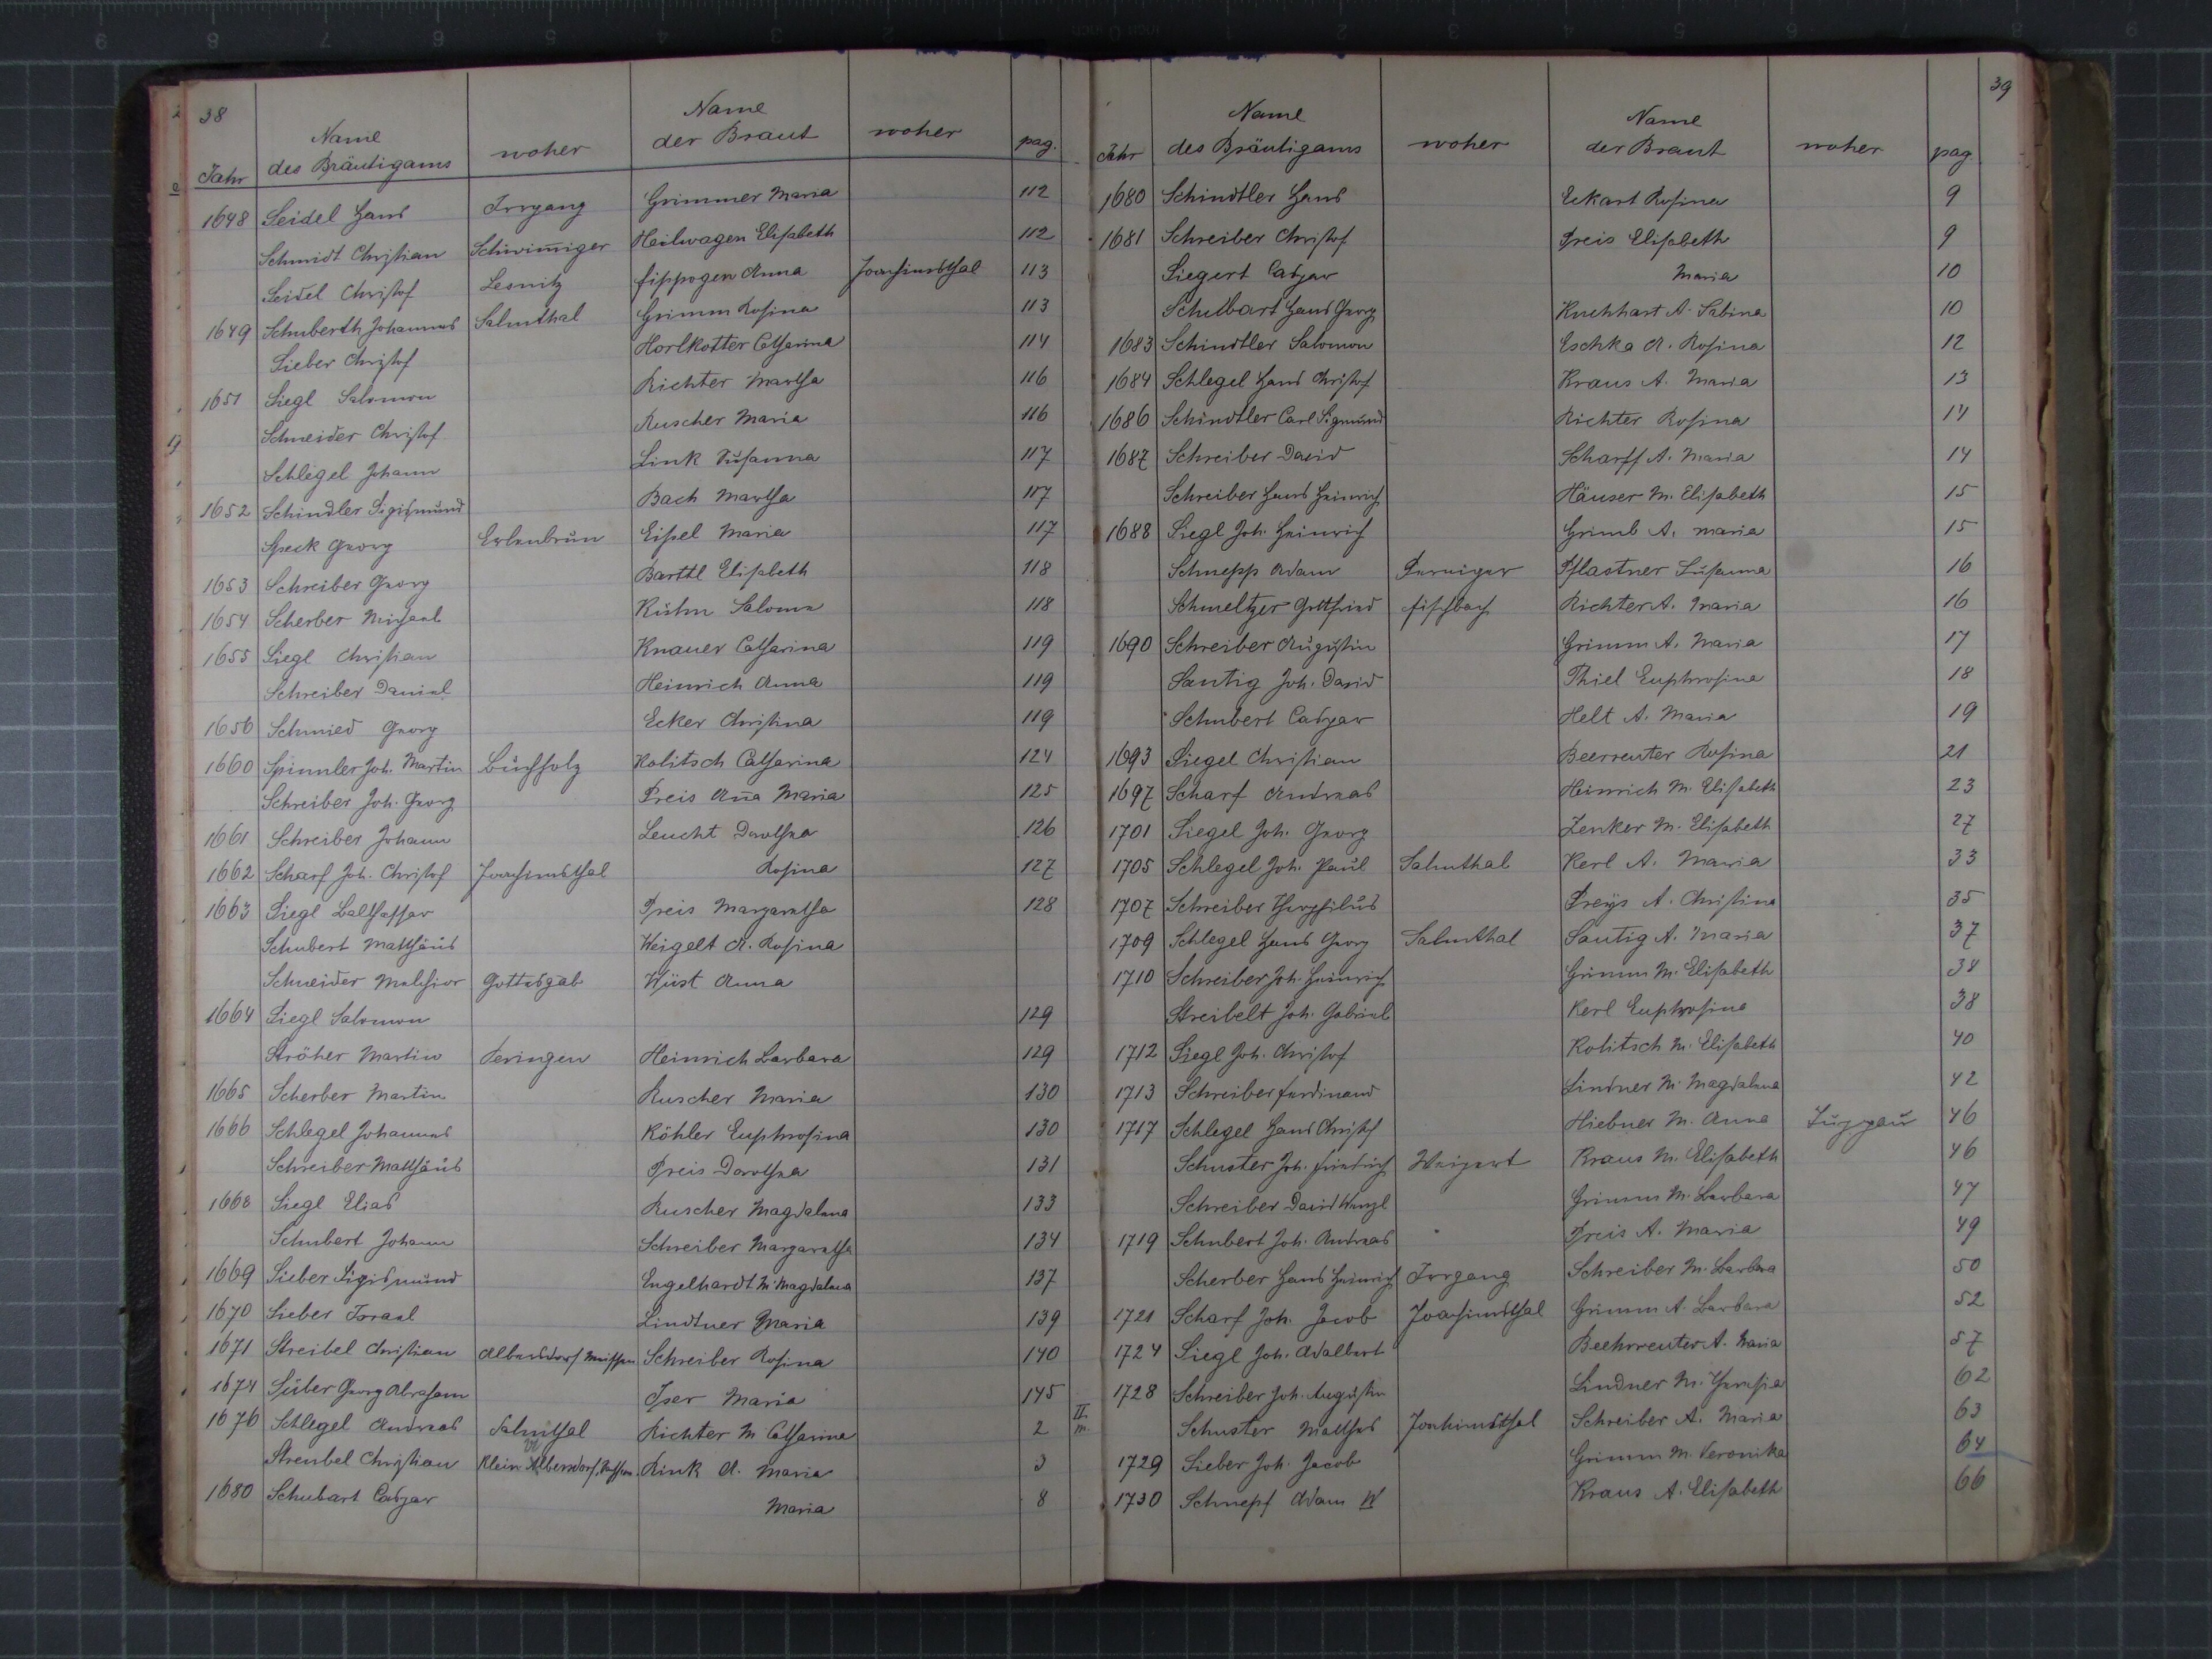 38
Jahr Name des Bräutigams woher Name der Braut woher pag.
1648 Seidel Hans Irrgang Grimmer Maria 112
Schmidt Christian Schwimiger Heilwagen Elisabeth 112
Seidel Christof Lesnitz Joachimsthal 113
1649 Schuberth Johannes Salmthal Grimm Rosina 113
Sieber Christof Horlkotter Catharina 114
1651 Siegl Salomon Richter Martha 116
Schneider Christof Ruscher Maria 116
Schlegel Johann Link Susanna 117
1652 Schindler Sigismund Bach Martha 117
Speck Georg Erlenbrun Eissel Maria 117
1653 Schreiber Georg Barttl Elisabeth 118
1654 Scherber Michael Kühn Salome 118
1655 Siegl Christian Knauer Catharina 119
Schreiber Daniel Heinrich Anna 119
1656 Schmied Georg Ecker Christina 119
1660 Spinnler Joh. Martin Buchholz Kolitsch Catharina 124
Schreiber Joh. Georg Preis Ana Maria 125
1661 Schreiber Johann Leucht Dorothea 126
1662 Scharf Joh. Christof Joachimsthal Rosina 127
1663 Siegl Balthassar Preis Margaretha 128
Schubert Matthäus Weigelt A. Rosina
Schneider Melchior Gottesgab Wüst Anna
1664 Siegl Salomon 129
Ströher Martin Heinrich Barbara 129
1665 Scherber Martin Ruscher Maria 130
1666 Schlegel Johannes Köhler Euphrosina 130
Schreiber Matthäus Preis Dorothea 131
1668 Siegl Elias Ruscher Magdalena 133
Schubert Johann Schreiber Margaretha 134
1669 Sieber Sigismund Engelhardt M. Magdalena 137
1670 Sieber Israel Lindtner Maria 139
1671 Streibel Christian Albersdorf Meissen Schreiber Rosina 140
1674 Süber Georg Abraham Iser Maria 145
1676 Schlegel Andreas Salmthal Richter M Catharina 2 II.
Streubel Christian Klein Albersdorf, Rink A. Maria 3
1680 Schubart Caspar Maria 8
39
Jahr Name des Bräutigams woher Name der Braut woher pag
1680 Schindtler Hans Eckart Rosina 9
1681 Schreiber Christof Preis Elisabeth 9
Siegert Caspar Maria 10
Schubart Hans Georg A. Sabina 10
1683 Schindtler Salomon Eschka A. Rosina 12
1684 Schlegel Hans Christof Kraus A. Maria 13
1686 Schindtler Carl Sigmund Richter Rosina 14
1687 Schreiber David Scharff A. Maria 14
Schreiber Hans Heinrich Häuser M. Elisabeth 15
1688 Siegl Joh. Heinrich Grimb A. maria 15
Schnepp Adam Perninger Pflastner Susanna 16
Schmeltzer Gottfried Fischbach Richter A. Maria 16
1690 Schreiber Augustin Grimm A. Maria 17
Santig Joh. David Thiel Euphrosine 18
Schubert Caspar Helt A. Maria 19
1693 Siegel Christian Beerreuter Rosina 21
1697 Scharf Andreas Heinrich M. Elisabeth 23
1701 Siegel Joh. Georg Zenker M. Elisabeth 27
1705 Schlegel Joh. Paul Salmthal Kerl A. Maria 33
1707 Schreiber Theophilus Preÿs A. Christina 35
1709 Schlegel Hans Georg Salmthal Santig A. Maria 37
1710 Schreiber Joh. Heinrich Grimm M. Elisabeth 38
Streibelt Joh. Gabriel Kerl Euphrosine 38
1712 Siegl Joh. Christof Kolitsch M. Elisabeth 40
1713 Schreiber Ferdinand Lindner M. Magdalena 42
1717 Schlegel Hans Christof Hiebner M. Anna 46
Schuster Joh. Friedrich Weipert Kraus M. Elisabeth 46
Schreiber David Wenzl Grimm M. Barbara 47
1719 Schubert Joh. Andreas Preis A. Maria 49
Scherber Hans Heinrich Irrgang Schreiber M. Barbara 50
1721 Scharf Joh. Jacob Joachimsthal Grimm A. Barbara 52
1724 Siegl Joh. Adalbert Beehrreuter A. Maria 57
1728 Schreiber Joh. Augustin Lindner M. 62
Schuster Mathes Joachimsthal Schreiber A. Maria 63
1729 Sieber Joh. Jacob Grimm M. Veronika 64
1730 Schnepf Adam W Kraus A. Elisabeth 66